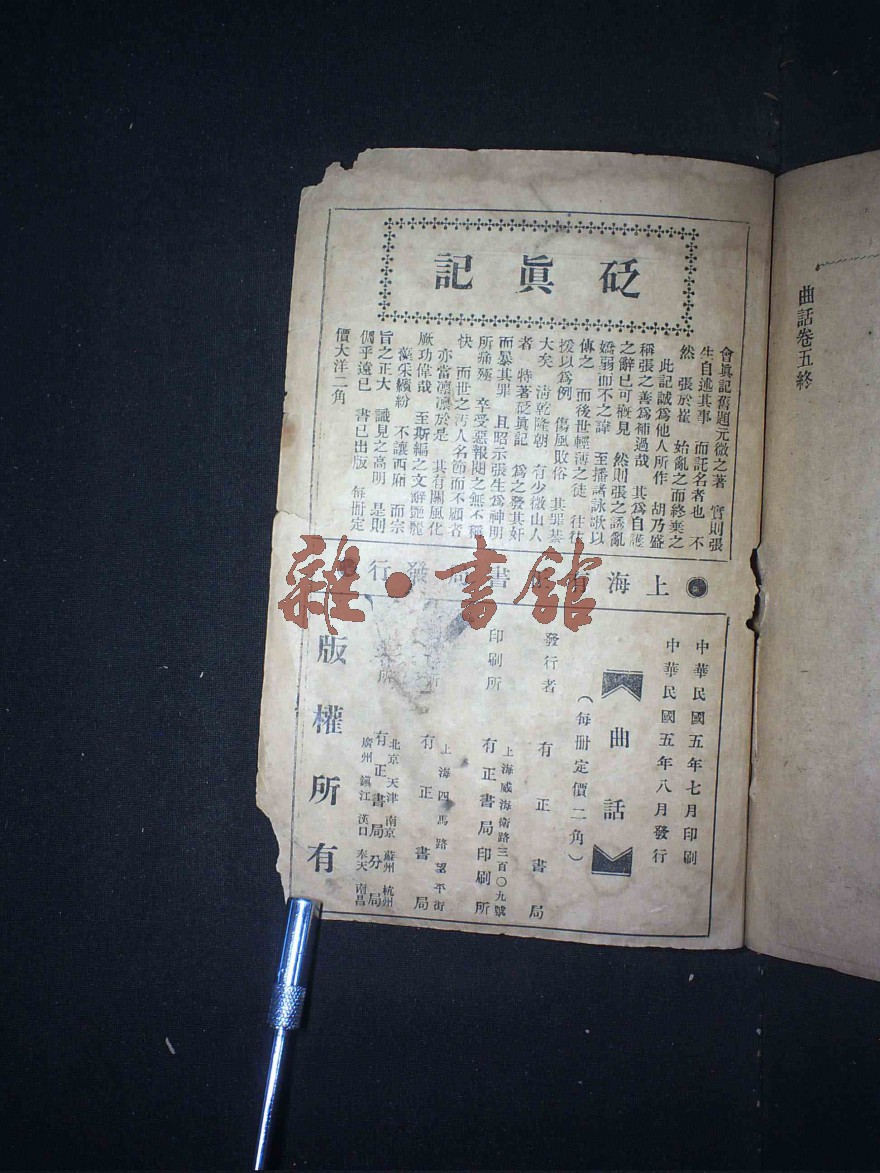 曲話卷五終
砭眞記
會眞記舊題元微之著　實則張
生自述其事　而託名者也　不
然　張於崔　始亂之而終棄之
此記誠爲他人所作　胡乃盛
稱張之善爲補過哉　其爲自護
之辭已可概見　然則張之誘亂
嬌弱而不之諱　至播諸詠歌以
傳之　而後世輕薄之徒　往往
援以爲例　傷風敗俗　其罪甚
大矣　淸乾隆朝　有少微山人
者　特著砭眞記　爲之發其奸
而暴其罪　且昭示張生爲神明
所痛殛　卒受惡報閱之無不稱
快　而世之汚人名節而不顧者
亦當凛凛於是　其有關風化
厥功偉哉　至斯編之文辭艷麗
藻采繽紛　不讓西廂　而宗
旨之正大　識見之高明　是則
儞乎遠已　書已出版　每册定
價大洋二角
上海有正書局發行
中華民國五年七月印刷
中華民國五年八月發行
曲話
（每册定價二角）
發行者　有正書局
上海威海衛路三百〇九號
印刷所　有正書局印刷所
上海四馬路望平街
所　有正書局
北京　天津　南京　蘇州　杭州
所　有正書局分局
廣州　鎭江　漢口　奉天　南昌
版權所有
雜·書館